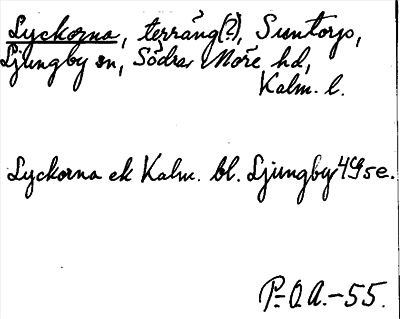 Lyckorna, terräng(?), Suntorp,
Ljungby sn, Södra Möre hd,
Kalm. l.
Lyckorna ek Kalm. bl. Ljungby 4G5e.
P-O A.-55.